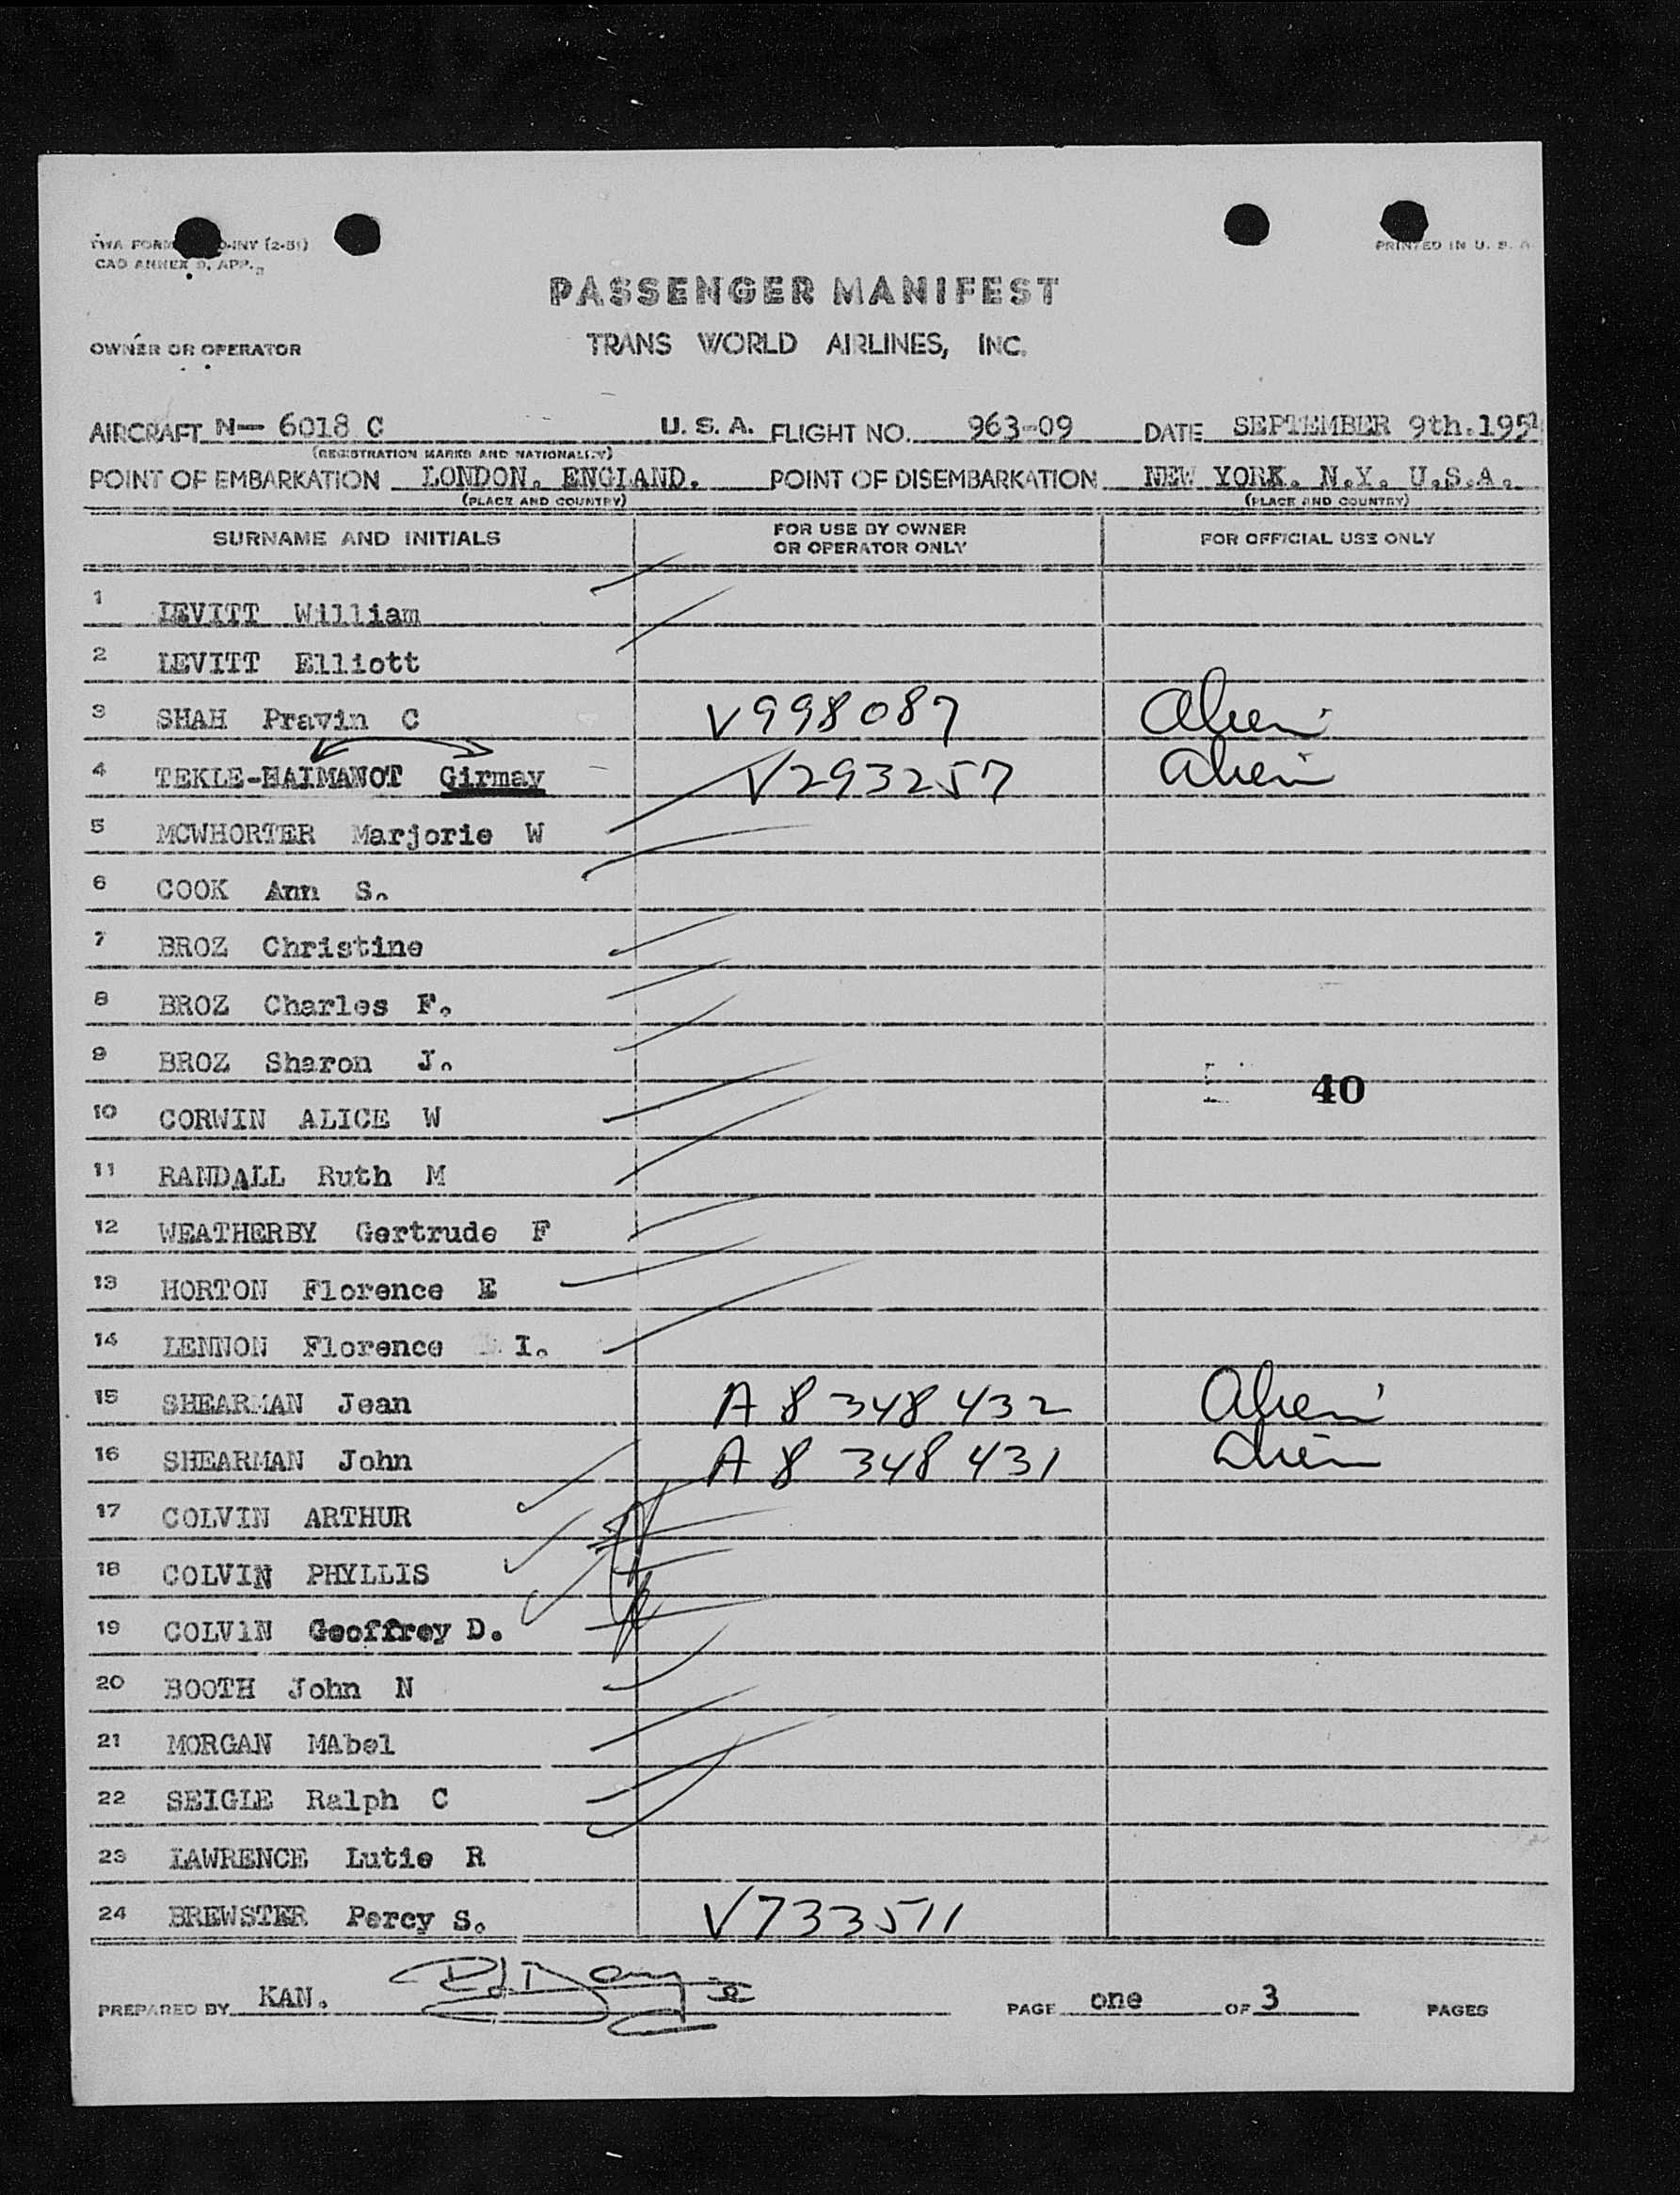 TWA FORM (2-51)
CAO ANNEX 9, APP.
PRINTED IN U. S. A.
PASSENGER MANIFEST
OWNER OR OPERATOR TRANS WORLD AIRLINES, INC.
AIRCRAFT N— 6018 C U. S. A. FLIGHT NO. 963-09 DATE SEPTEMBER 9th.1951
(REGISTRATION MARKS AND NATIONALITY)
POINT OF EMBARKATION LONDON. ENGLAND. POINT OF DISEMBARKATION NEW YORK. N.Y. U.S.A.
(PLACE AND COUNTRY) (PLACE AND COUNTRY)
SURNAME AND INITIALS FOR USE BY OWNER OR OPERATOR ONLY FOR OFFICIAL USE ONLY
1 LEVITT William
2 LEVITT Elliott
3 SHAH Pravin C V998087 Alien
4 TEKLE-HAIMANOT Girmay V293257 Alien
5 MCWHORTER Marjorie W
6 COOK Ann S.
7 BROZ Christine
8 BROZ Charles F.
9 BROZ Sharon J.
40
10 CORWIN ALICE W
11 RANDALL Ruth M
12 WEATHERBY Gertrude F
13 HORTON Florence E
14 LENNON Florence I.
15 SHEARMAN Jean A 8 348 432 Alien
16 SHEARMAN John A 8 348 431 Alien
17 COLVIN ARTHUR
18 COLVIN PHYLLIS
19 COLVIN Geoffrey D.
20 BOOTH John N
21 MORGAN MAbel
22 SEIGLE Ralph C
23 LAWRENCE Lutie R
24 BREWSTER Percy S. V733511
PREPARED BY KAN. PAGE one OF 3 PAGES